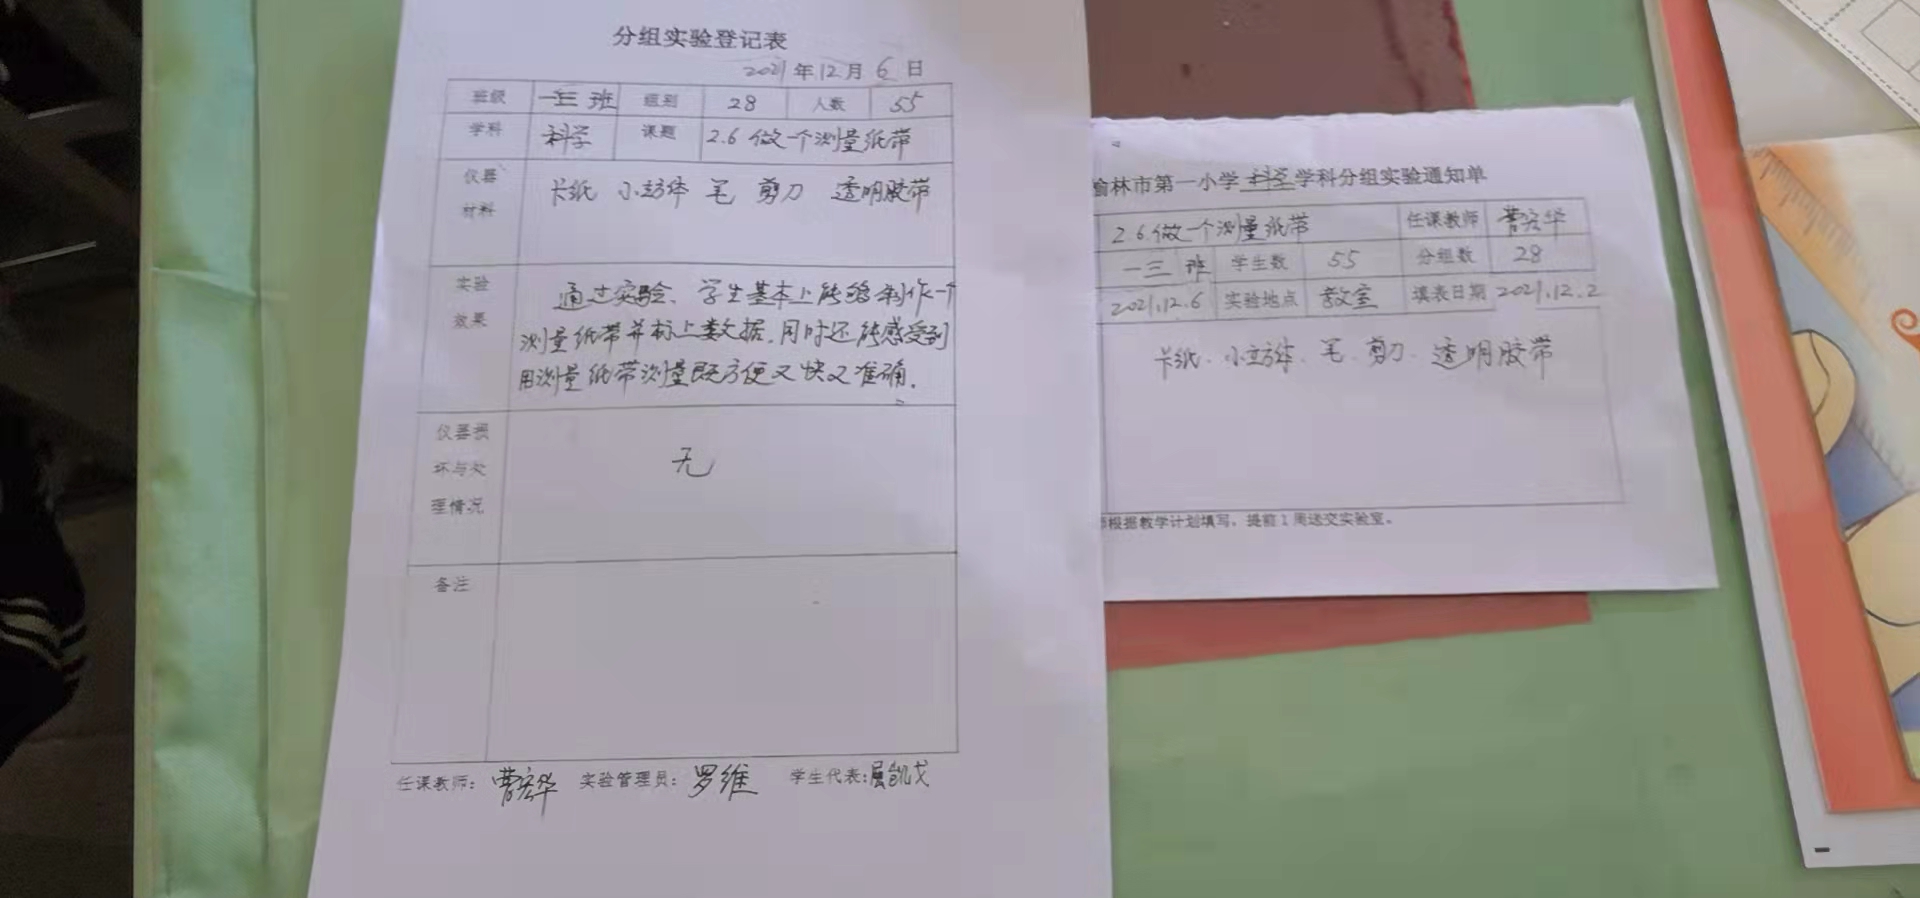 分组实验登记表
2021年12月6日
班级 一三班 组别 28 人数 55
学科 科学 课题 2.6做一个测量纸带
仪器材料 卡纸 小立方体 笔 剪刀 透明胶带
实验效果 通过实验、学生基本上能够制作一个
测量纸带并标上数据,同时还能感受到
用测量纸带测量既方便又快又准确。
仪器损
坏与处
理情况
无
备注
任课教师:曹宏华 实验管理员:罗维 学生代表:屈凯戈
榆林市第一小学科学学科分组实验通知单
2.6.做一个测量纸带 任课教师 曹宏华
一三班 学生数 55 分组数 28
2021.12.6 实验地点 教室 填表日期 2021.12.2
卡纸、小立方体、笔、剪刀、透明胶带
师根据教学计划填写,提前1周送交实验室。